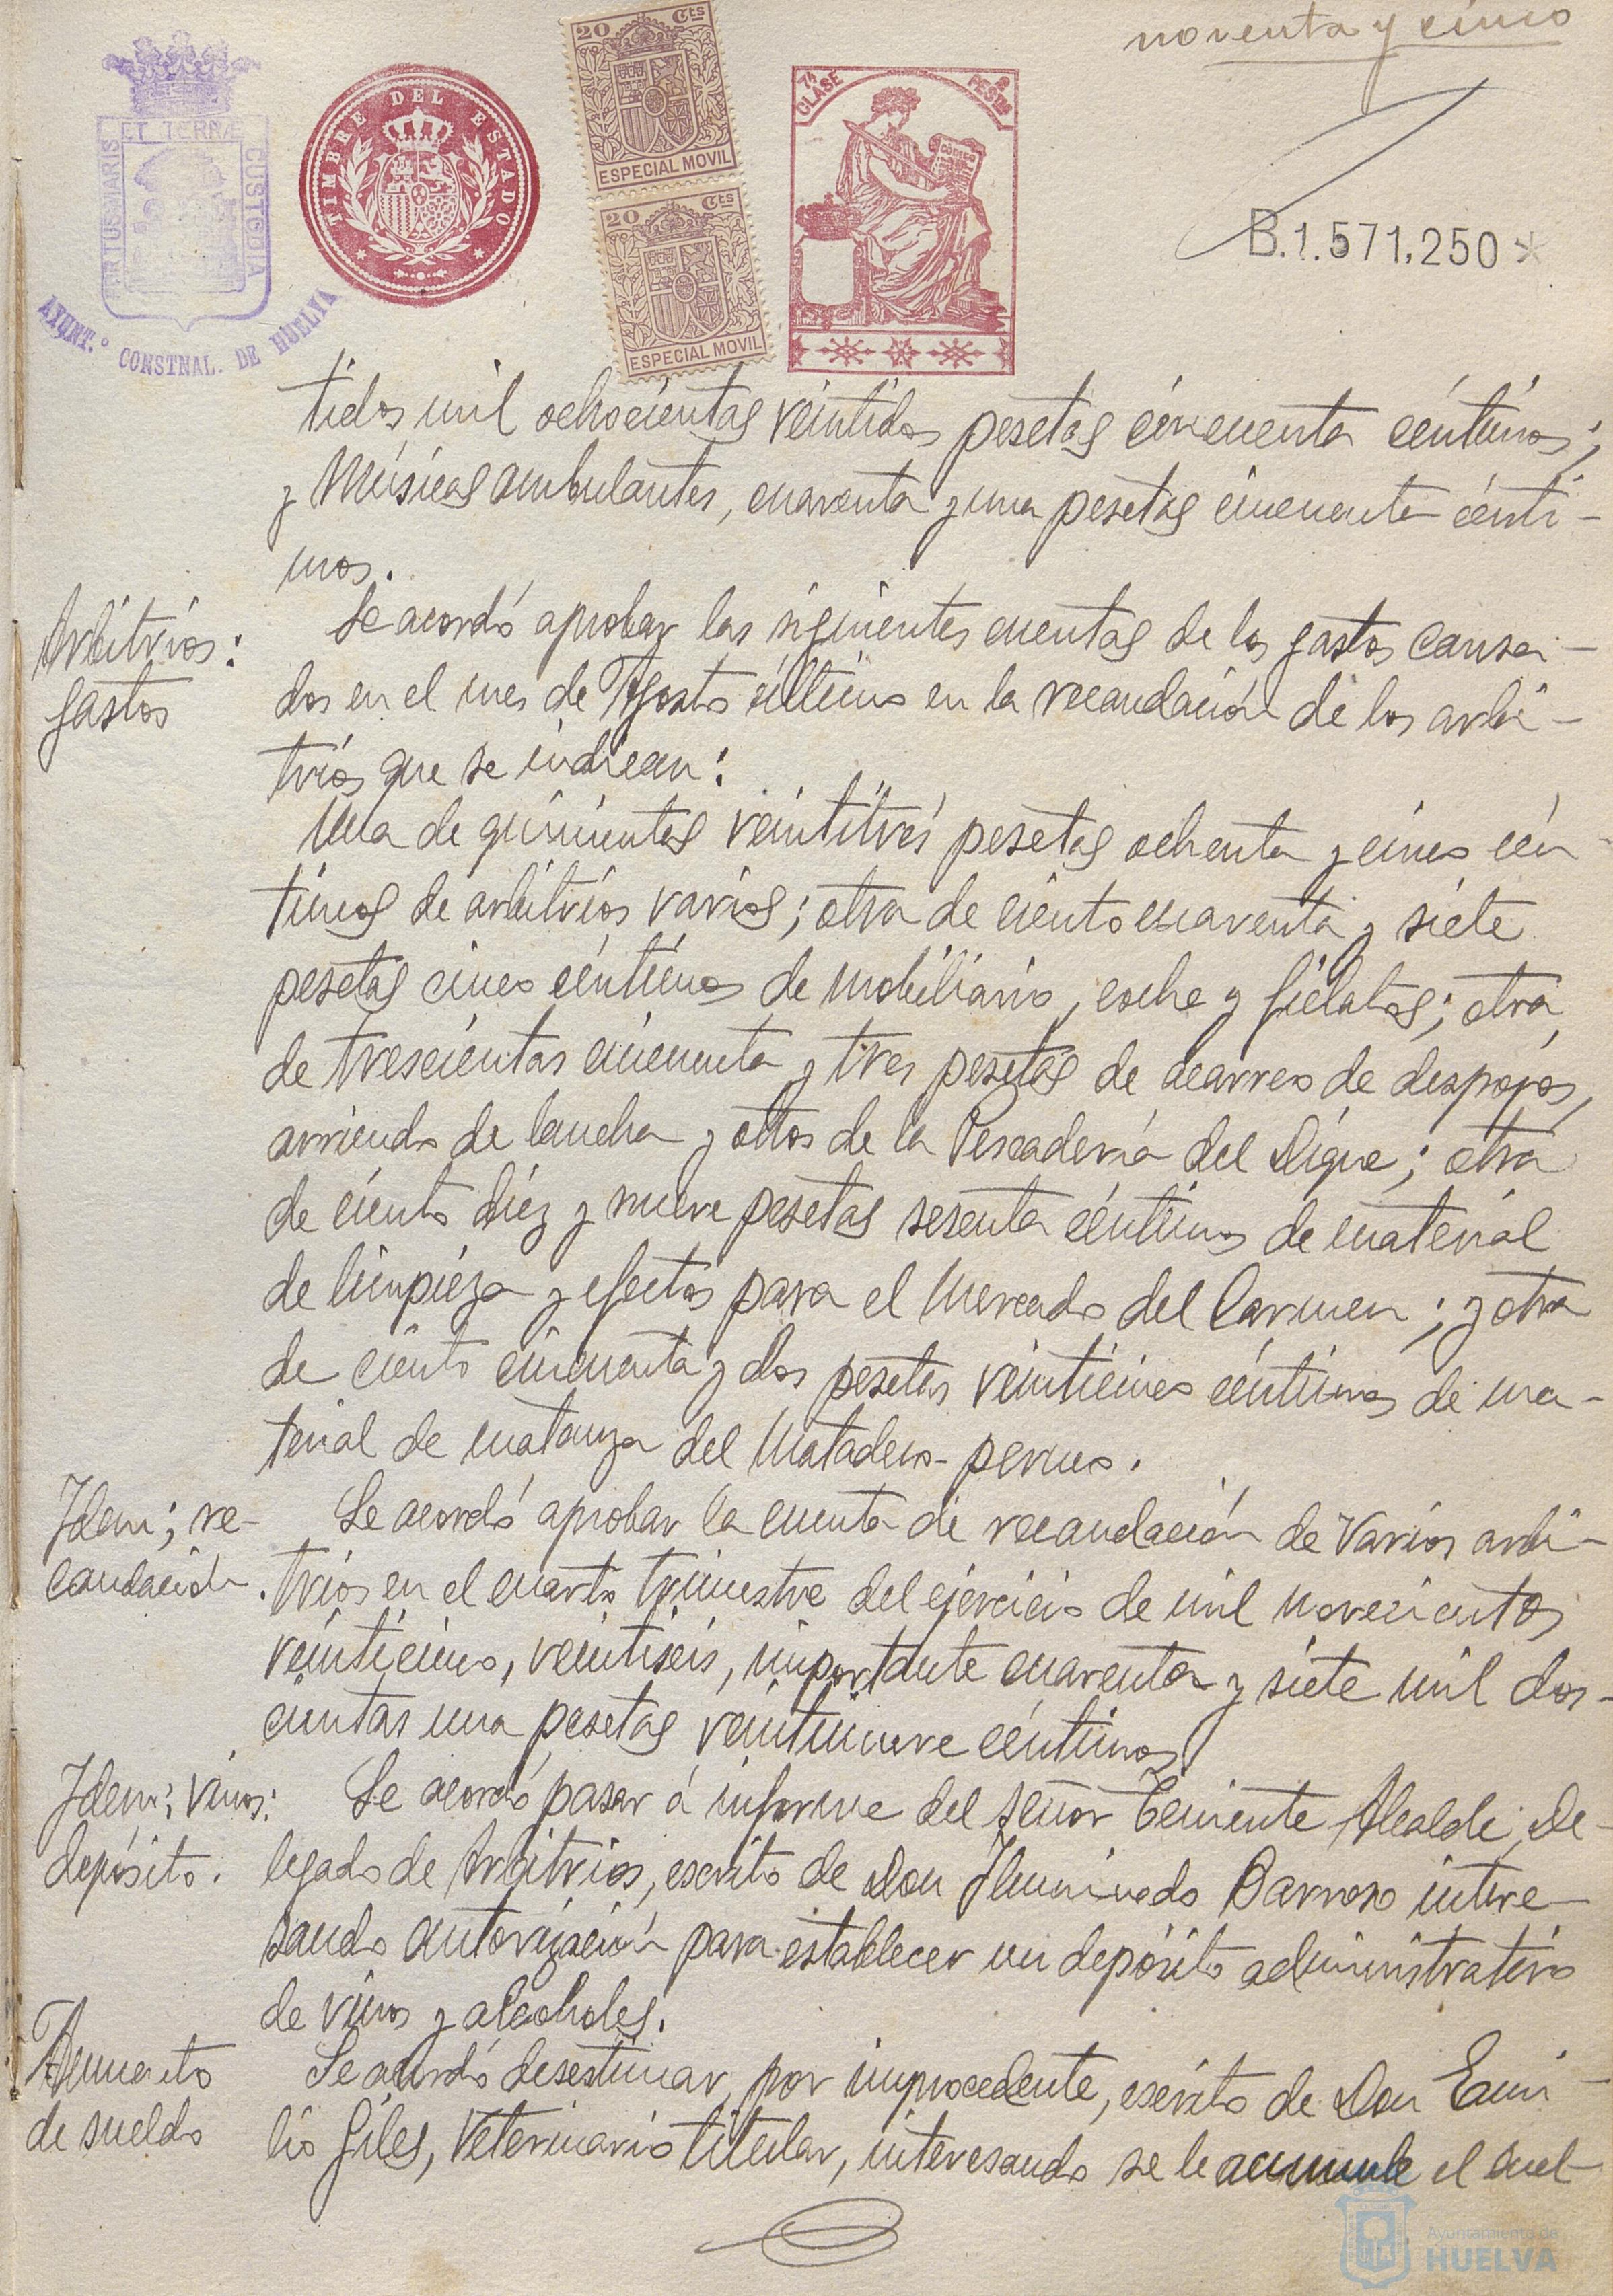 noventa y cinco
PORTUS MARIS ET TERRÆ CUSTODIA
AYUNT.º CONSTNAL. DE HUELVA
TIMBRE DEL ESTADO
20 Cts
ESPECIAL MOVIL
20 Cts
ESPECIAL MOVIL
7ª CLASE
2 PESTAS
CODIGO
B.1.571,250*
tidos mil ochocientas veintidos pesetas cincuenta céntimos;
y Músicas ambulantes, cuarenta y una pesetas cincuenta cénti-
mos.
Arbitrios:
gastos
Se acordó aprobar las siguientes cuentas de los gastos causa-
dos en el mes de Agosto último en la recaudación de los arbi-
trios que se indican:
Una de quinientas veintitrés pesetas ochenta y cinco cén-
timos de arbitrios varios; otra de ciento cuarenta y siete
pesetas cinco céntimos de mobiliario, coche y fielatos; otra
de trescientas cincuenta y tres pesetas de acarreo de despojos,
arriendo de lancha y otros de la Pescadería del Dique; otra
de ciento diez y nueve pesetas sesenta céntimos de material
de limpieza y efectos para el Mercado del Carmen; y otra
de ciento cincuenta y dos pesetas veinticinco céntimos de ma-
terial de matanza del Matadero-permo.
Idem; re-
caudación.
Se acordó aprobar la cuenta de recaudación de varios arbi-
trios en el cuarto trimestre del ejercicio de mil novecientos
veinticinco, veintiseis, importante cuarenta y siete mil dos-
cientas una pesetas veintinueve céntimos
Idem; vinos:
depósito.
Se acordó pasar á informe del señor Teniente Alcalde De-
legado de Arbitrios, escrito de Don Iluminado Barroso intere-
sando autorización para establecer un depósito administrativo
de vinos y alcoholes.
Aumento
de sueldo
Se acordó desestimar, por improcedente, escrito de Don Emi-
lio Giles, Veterinario titular, interesando se le acumule el suel-
Ayuntamiento de
HUELVA